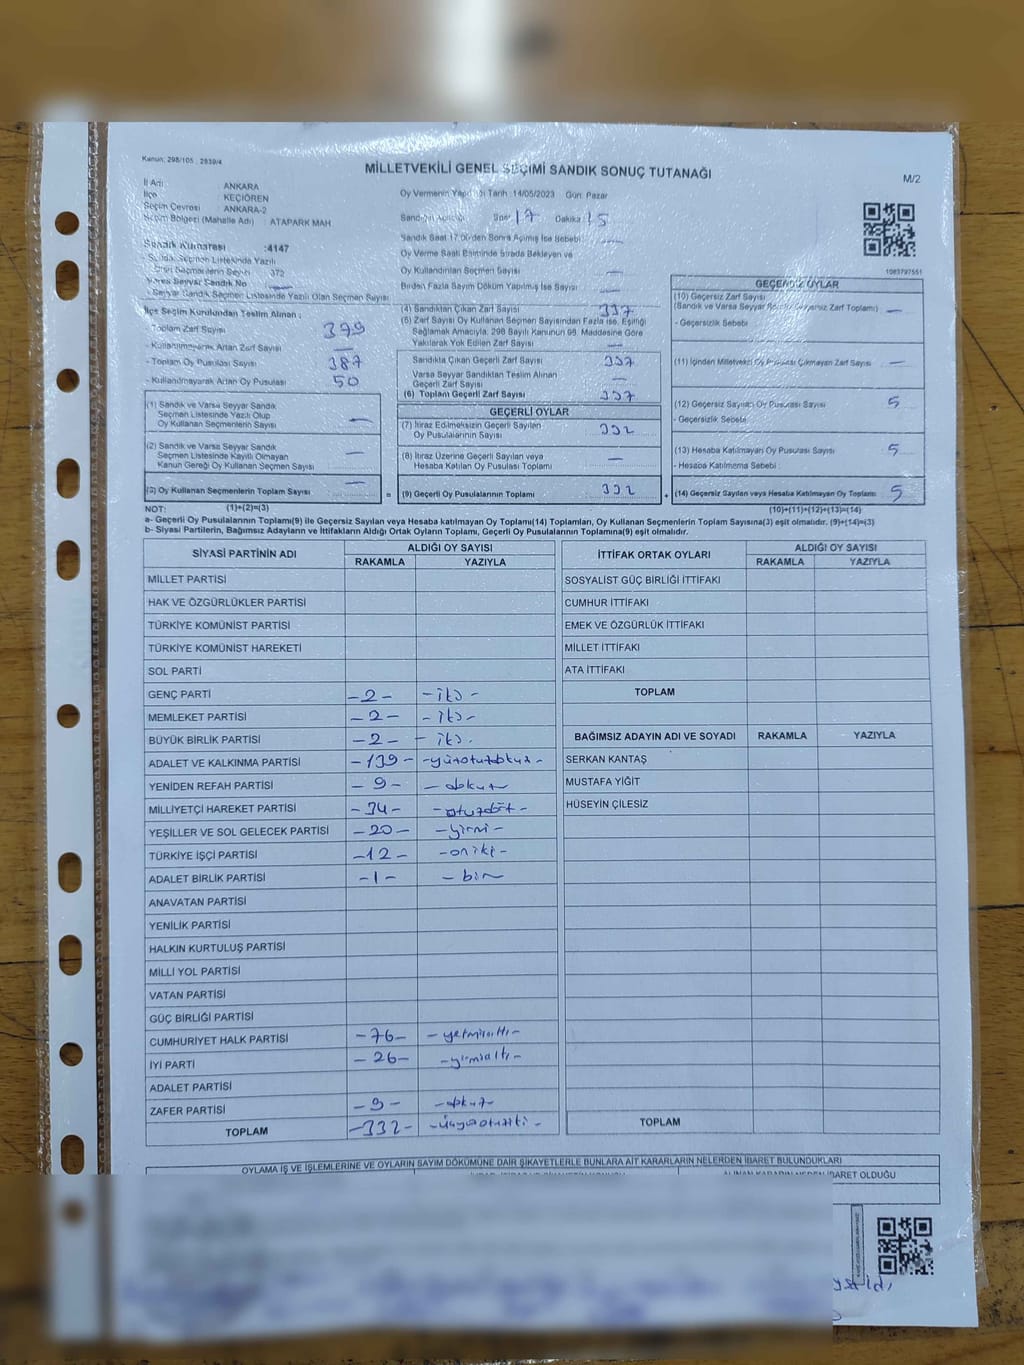 Kanun: 298/105 : 2839/4
MİLLETVEKİLİ GENEL SEÇİMİ SANDIK SONUÇ TUTANAĞI
M/2
İl Adı : ANKARA
İlçe : KEÇİÖREN
Seçim Çevresi : ANKARA-2
Seçim Bölgesi (Mahalle Adı) : ATAPARK MAH
Oy Vermenin Yapıldığı Tarih :14/05/2023 Gün: Pazar
Sandığın Açıldığı Saat 17 Dakika 15
Sandık Saat 17:00'den Sonra Açılmış İse Sebebi
Oy Verme Saati Bitiminde Sırada Bekleyen ve
Oy Kullandırılan Seçmen Sayısı
Birden Fazla Sayım Döküm Yapılmış İse Sayısı
1083797551
Sandık Numarası :4147
- Sandık Seçmen Listesinde Yazılı
Olan Seçmenlerin Sayısı 372
Varsa Seyyar Sandık No
- Seyyar Sandık Seçmen Listesinde Yazılı Olan Seçmen Sayısı
İlçe Seçim Kurulundan Teslim Alınan ;
- Toplam Zarf Sayısı 399
- Kullanılmayarak Artan Zarf Sayısı
- Toplam Oy Pusulası Sayısı 387
- Kullanılmayarak Artan Oy Pusulası 50
(1) Sandık ve Varsa Seyyar Sandık
Seçmen Listesinde Yazılı Olup
Oy Kullanan Seçmenlerin Sayısı —
(2) Sandık ve Varsa Seyyar Sandık
Seçmen Listesinde Kayıtlı Olmayan
Kanun Gereği Oy Kullanan Seçmen Sayısı —
(3) Oy Kullanan Seçmenlerin Toplam Sayısı —
(4) Sandıktan Çıkan Zarf Sayısı 337
(5) Zarf Sayısı Oy Kullanan Seçmen Sayısından Fazla ise, Eşitliği
Sağlamak Amacıyla, 298 Sayılı Kanunun 98. Maddesine Göre
Yakılarak Yok Edilen Zarf Sayısı —
Sandıkta Çıkan Geçerli Zarf Sayısı 337
Varsa Seyyar Sandıktan Teslim Alınan
Geçerli Zarf Sayısı —
(6) Toplam Geçerli Zarf Sayısı 337
GEÇERLİ OYLAR
(7) İtiraz Edilmeksizin Geçerli Sayılan
Oy Pusulalarının Sayısı 332
(8) İtiraz Üzerine Geçerli Sayılan veya
Hesaba Katılan Oy Pusulası Toplamı —
= (9) Geçerli Oy Pusulalarının Toplamı 332
GEÇERSİZ OYLAR
(10) Geçersiz Zarf Sayısı
(Sandık ve Varsa Seyyar Sandık Geçersiz Zarf Toplamı) —
- Geçersizlik Sebebi
(11) İçinden Milletvekili Oy Pusulası Çıkmayan Zarf Sayısı —
(12) Geçersiz Sayılan Oy Pusulası Sayısı 5
- Geçersizlik Sebebi
(13) Hesaba Katılmayan Oy Pusulası Sayısı 5
- Hesaba Katılmama Sebebi :
+ (14) Geçersiz Sayılan veya Hesaba Katılmayan Oy Toplamı 5
NOT: (1)+(2)=(3) (10)+(11)+(12)+(13)=(14)
a- Geçerli Oy Pusulalarının Toplamı(9) ile Geçersiz Sayılan veya Hesaba katılmayan Oy Toplamı(14) Toplamları, Oy Kullanan Seçmenlerin Toplam Sayısına(3) eşit olmalıdır. (9)+(14)=(3)
b- Siyasi Partilerin, Bağımsız Adayların ve İttifakların Aldığı Ortak Oyların Toplamı, Geçerli Oy Pusulalarının Toplamına(9) eşit olmalıdır.
SİYASİ PARTİNİN ADI ALDIĞI OY SAYISI
RAKAMLA YAZIYLA
MİLLET PARTİSİ
HAK VE ÖZGÜRLÜKLER PARTİSİ
TÜRKİYE KOMÜNİST PARTİSİ
TÜRKİYE KOMÜNİST HAREKETİ
SOL PARTİ
GENÇ PARTİ -2- -iki-
MEMLEKET PARTİSİ -2- -iki-
BÜYÜK BİRLİK PARTİSİ -2- -iki.
ADALET VE KALKINMA PARTİSİ -139- -yüzotuzdokuz-
YENİDEN REFAH PARTİSİ -9- -dokuz
MİLLİYETÇİ HAREKET PARTİSİ -34- -otuzdört-
YEŞİLLER VE SOL GELECEK PARTİSİ -20- -yirmi-
TÜRKİYE İŞÇİ PARTİSİ -12- -oniki-
ADALET BİRLİK PARTİSİ -1- -bir
ANAVATAN PARTİSİ
YENİLİK PARTİSİ
HALKIN KURTULUŞ PARTİSİ
MİLLİ YOL PARTİSİ
VATAN PARTİSİ
GÜÇ BİRLİĞİ PARTİSİ
CUMHURİYET HALK PARTİSİ -76- -yetmişaltı-
İYİ PARTİ -26- -yirmialtı-
ADALET PARTİSİ
ZAFER PARTİSİ -9- -dokuz-
TOPLAM -332- -üçyüzotuziki-
İTTİFAK ORTAK OYLARI ALDIĞI OY SAYISI
RAKAMLA YAZIYLA
SOSYALİST GÜÇ BİRLİĞİ İTTİFAKI
CUMHUR İTTİFAKI
EMEK VE ÖZGÜRLÜK İTTİFAKI
MİLLET İTTİFAKI
ATA İTTİFAKI
TOPLAM
BAĞIMSIZ ADAYIN ADI VE SOYADI RAKAMLA YAZIYLA
SERKAN KANTAŞ
MUSTAFA YİĞİT
HÜSEYİN ÇİLESİZ
TOPLAM
OYLAMA İŞ VE İŞLEMLERİNE VE OYLARIN SAYIM DÖKÜMÜNE DAİR ŞİKAYETLERLE BUNLARA AİT KARARLARIN NELERDEN İBARET BULUNDUKLARI
ALINAN KARARIN NEDEN İBARET OLDUĞU